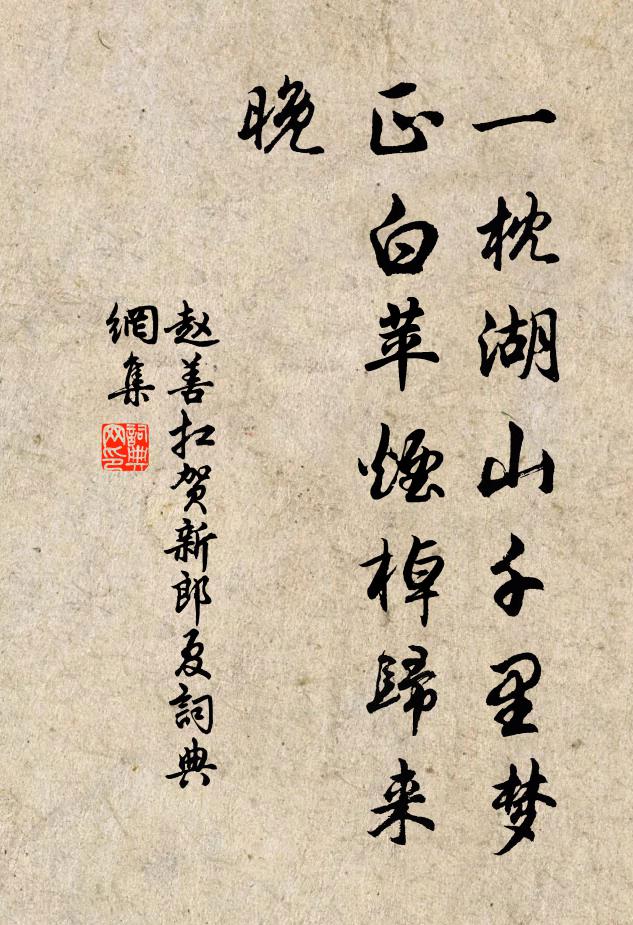 一枕湖山千里梦
正白苹煙棹歸来
晚
赵善扛贺新郎夏詞典
網集
詞典
网印